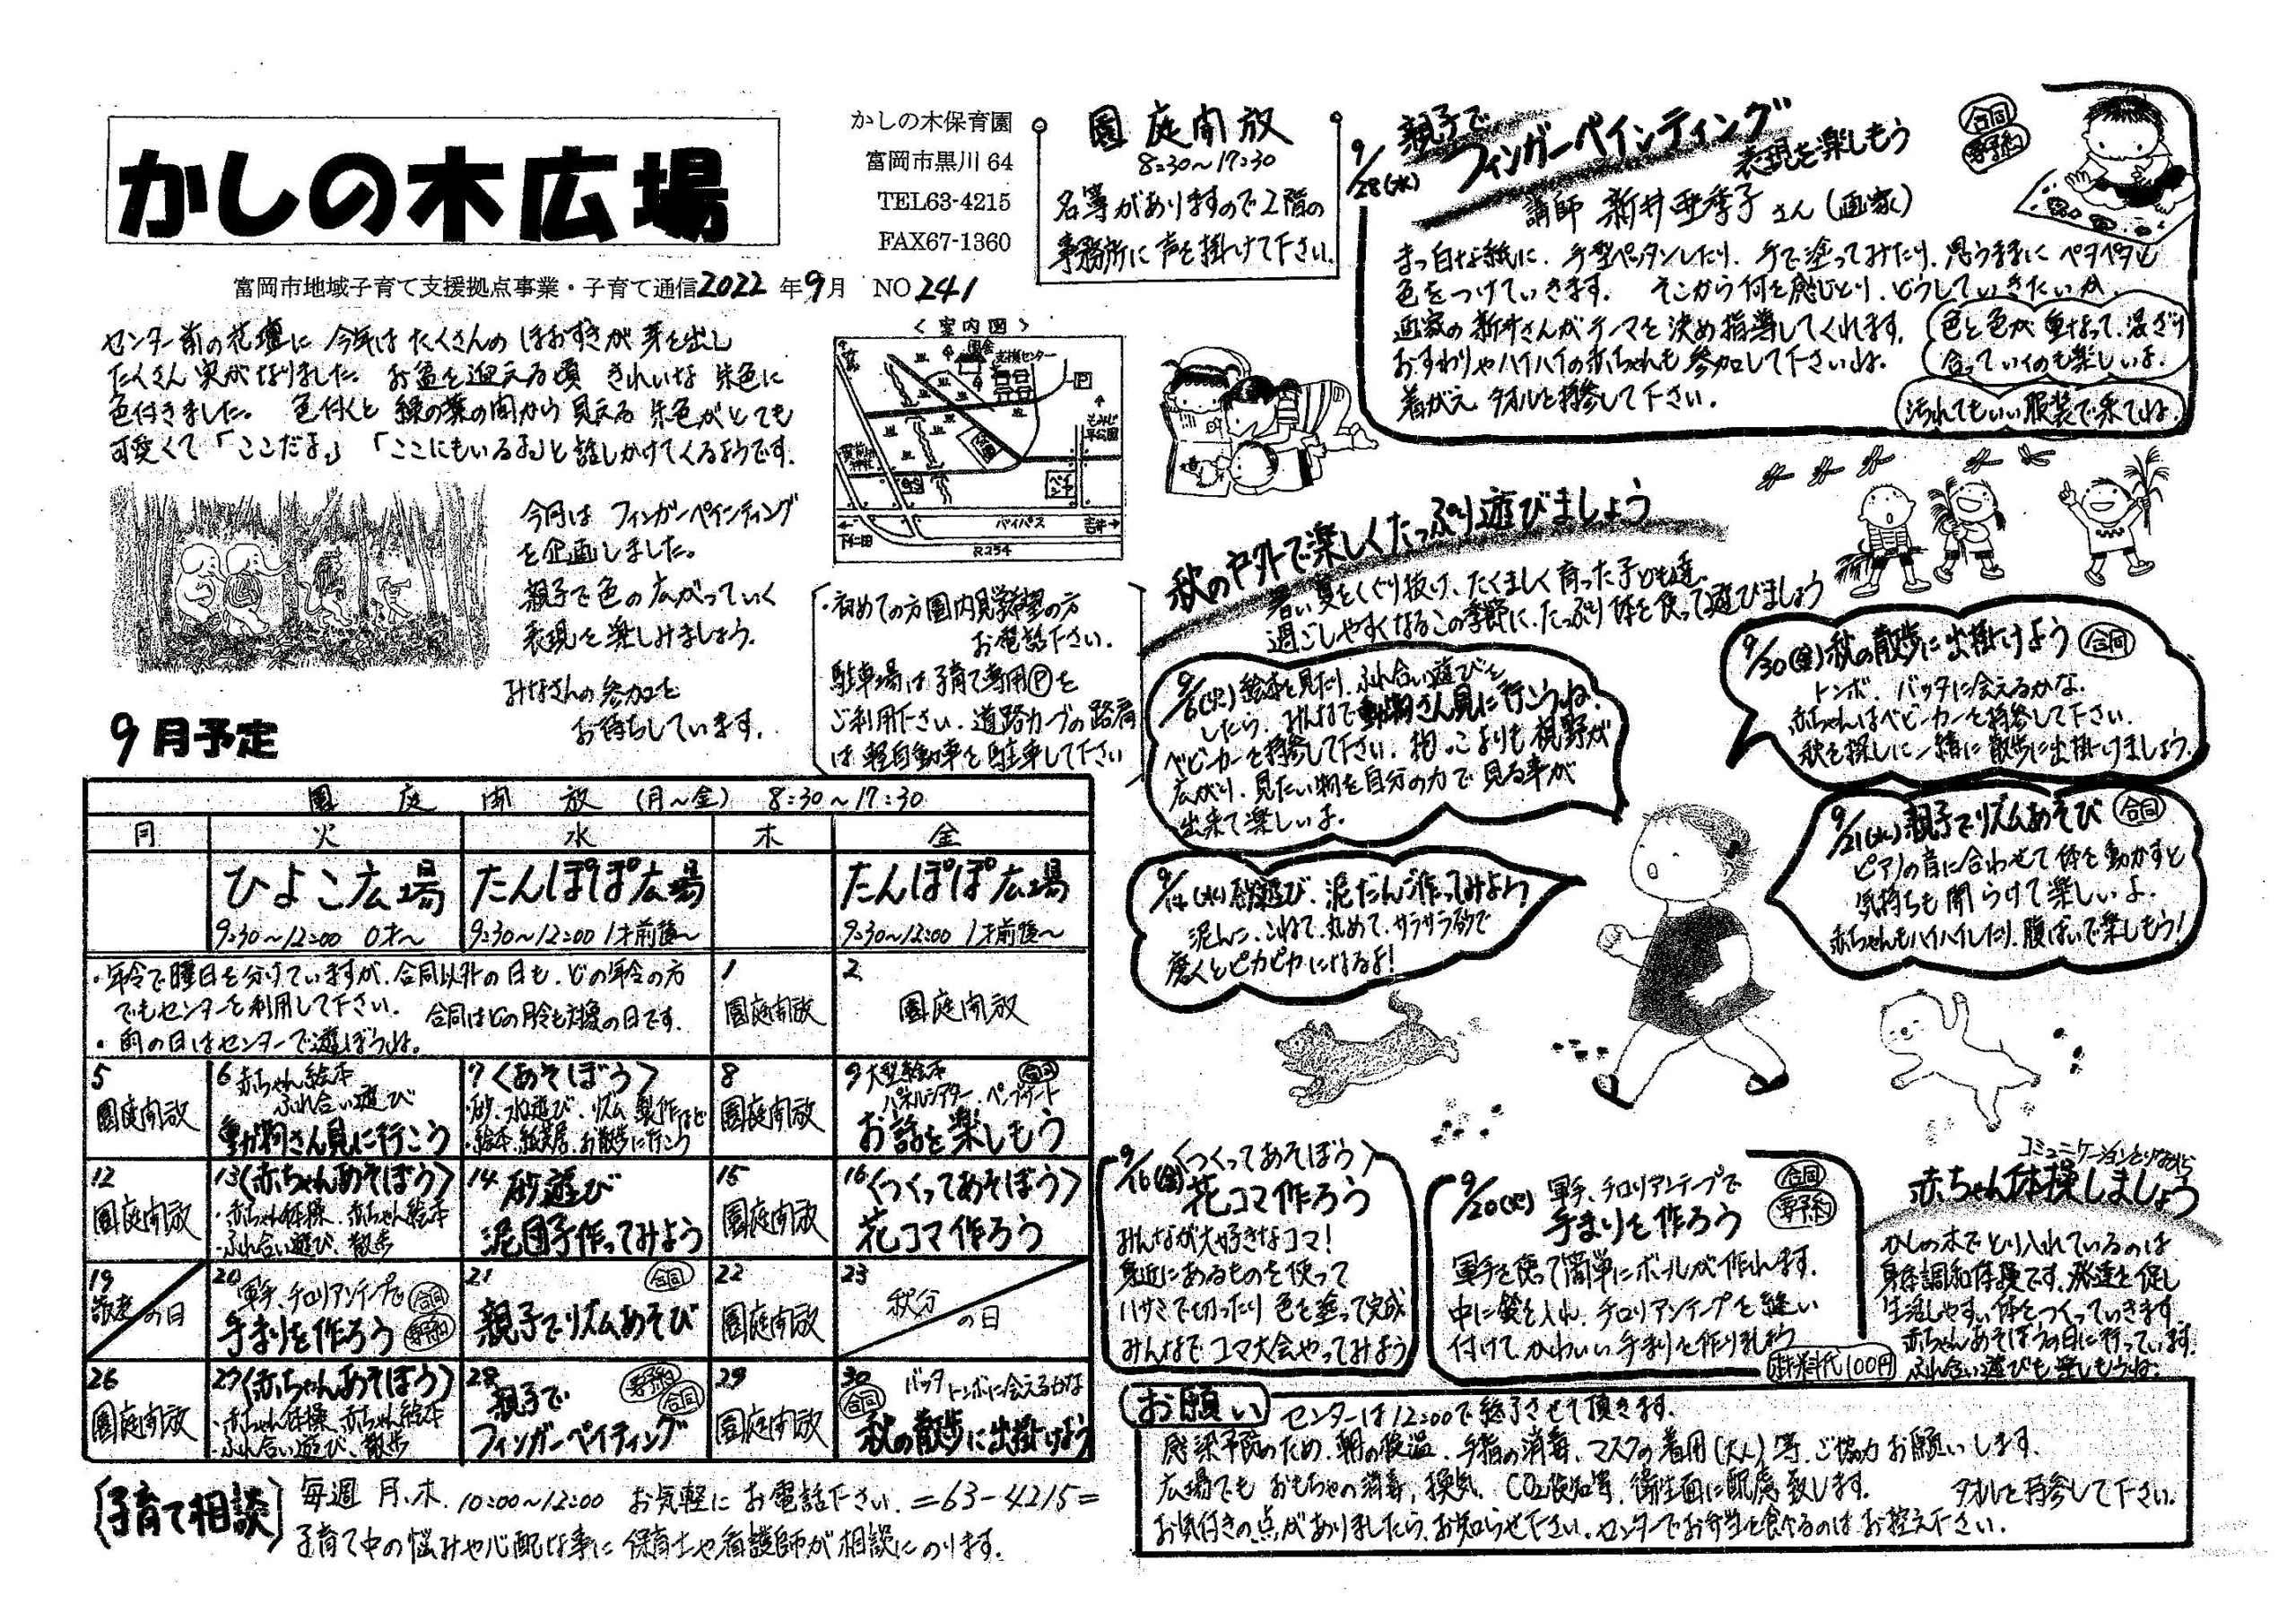 かしの木広場
かしの木保育園
富岡市黒川 64
TEL63-4215
FAX67-1360
富岡市地域子育て支援拠点事業・子育て通信2022 年9月 NO241
センター前の花壇に 今年は たくさんの ほおずきが 芽を出し
たくさん 実がなりました。 お盆を迎える頃 きれいな 朱色に
色付きました。 色付くと 緑の葉の間から 見える 朱色がとても
可愛くて「ここだよ」「ここにもいるよ」と話しかけてくるようです。
今月は フィンガーペインティング
を企画しました。
親子で色の広がっていく
表現を楽しみましょう。
みなさんの参加を
お待ちしています。
園庭開放
8:30〜17:30
名簿がありますので2階の
事務所に声を掛けて下さい。
〈案内図〉
支援センター
P
もみじ平公園
バイパス
吉井→
下仁田
R254
・初めての方園内見学希望の方
お電話下さい。
駐車場は子育て専用Ⓟを
ご利用下さい。道路カーブの路肩
は軽自動車を駐車して下さい
9月予定
園庭開放 (月〜金) 8:30〜17:30
月 火 水 木 金
ひよこ広場 たんぽぽ広場 たんぽぽ広場
9:30〜12:00 0才〜 9:30〜12:00 1才前後〜 9:30〜12:00 1才前後〜
・年令で曜日を分けていますが、合同以外の日も、どの年令の方
でもセンターを利用して下さい。 合同はどの月令も対象の日です。
・雨の日はセンターで遊ぼうね。
1 園庭開放
2 園庭開放
5 園庭開放
6 赤ちゃん絵本
ふれ合い遊び
動物さん見に行こう
7 〈あそぼう〉
・砂、水遊び、リズム 製作など
・絵本、紙芝居、お散歩に行こう
8 園庭開放
9 大型絵本 合同
パネルシアター、ペープサート
お話を楽しもう
12 園庭開放
13 〈赤ちゃんあそぼう〉
・赤ちゃん体操、赤ちゃん絵本
・ふれ合い遊び、散歩
14 砂遊び
泥団子作ってみよう
15 園庭開放
16 〈つくってあそぼう〉
花コマ作ろう
19 敬老の日
20 軍手、チロリアンテープで 合同
手まりを作ろう 要予約
21 合同
親子でリズムあそび
22 園庭開放
23 秋分の日
26 園庭開放
27 〈赤ちゃんあそぼう〉
・赤ちゃん体操、赤ちゃん絵本
・ふれ合い遊び、散歩
28 親子で 要予約 合同
フィンガーペイティング
29 園庭開放
30 合同 バッタ トンボに会えるかな
秋の散歩に出掛けよう
子育て相談
毎週 月、木、10:00〜12:00 お気軽に お電話下さい。=63-4215=
子育て中の悩みや心配な事に 保育士や看護師が相談にのります。
9/28(水) 親子で
フィンガーペインティング
表現を楽しもう
合同
要予約
講師 新井亜季子さん(画家)
まっ白な紙に、手型ペッタンしたり、手で塗ってみたり、思うままに ペタペタと
色をつけていきます。 そこから何を感じとり、どうしていきたいか、
画家の新井さんがテーマを決め指導してくれます。
おすわりやハイハイの赤ちゃんも参加して下さいね。
着がえ タオルを持参して下さい。
色と色が重なって、混ざり
合っていくのも楽しいよ。
汚れてもいい服装で来てね
秋の戸外で楽しくたっぷり遊びましょう
暑い夏をくぐり抜け、たくましく育った子ども達。
過ごしやすくなるこの季節に、たっぷり体を使って遊びましょう
9/6(火) 絵本を見たり、ふれ合い遊びを
したら、みんなで動物さん見に行こうね。
ベビーカーを持参して下さい。抱っこよりも視野が
広がり、見たい物を自分の力で見る事が
出来て楽しいよ。
9/30(金) 秋の散歩に出掛けよう 合同
トンボ、バッタに会えるかな。
赤ちゃんはベビーカーを持参して下さい。
秋を探しに一緒に散歩に出掛けましょう。
9/14(水) 砂遊び、泥だんご作ってみよう
泥んこ、こねて、丸めて、サラサラ砂で
磨くとピカピカになるよ!
9/21(水) 親子でリズムあそび 合同
ピアノの音に合わせて体を動かすと
気持ちも開らけて楽しいよ。
赤ちゃんもハイハイしたり、腹ばいで楽しもう!
9/16(金) 〈つくってあそぼう〉
花コマ作ろう
みんなが大好きなコマ!
身近にあるものを使って
ハサミで切ったり 色を塗って完成
みんなで コマ大会やってみよう
9/20(火) 軍手、チロリアンテープで
手まりを作ろう
合同
要予約
軍手を使って簡単にボールが作れます。
中に鈴を入れ、チロリアンテープを縫い
付けて かわいい手まりを作りましょう
材料代100円
コミュニケーションとりながら
赤ちゃん体操しましょう
かしの木でとり入れているのは
身体調和体操です。発達を促し
生活しやすい体をつくっていきます。
赤ちゃんあそぼうの日に行っています。
ふれ合い遊びも楽しもうね。
お願い センターは12:00で終了させて頂きます。
感染予防のため、朝の検温、手指の消毒、マスクの着用(大人)等、ご協力お願いします。
広場でも おもちゃの消毒、換気、CO2検知等、衛生面に配慮致します。 タオルを持参して下さい。
お気付きの点がありましたら、お知らせ下さい。センターでお弁当を食べるのはお控え下さい。